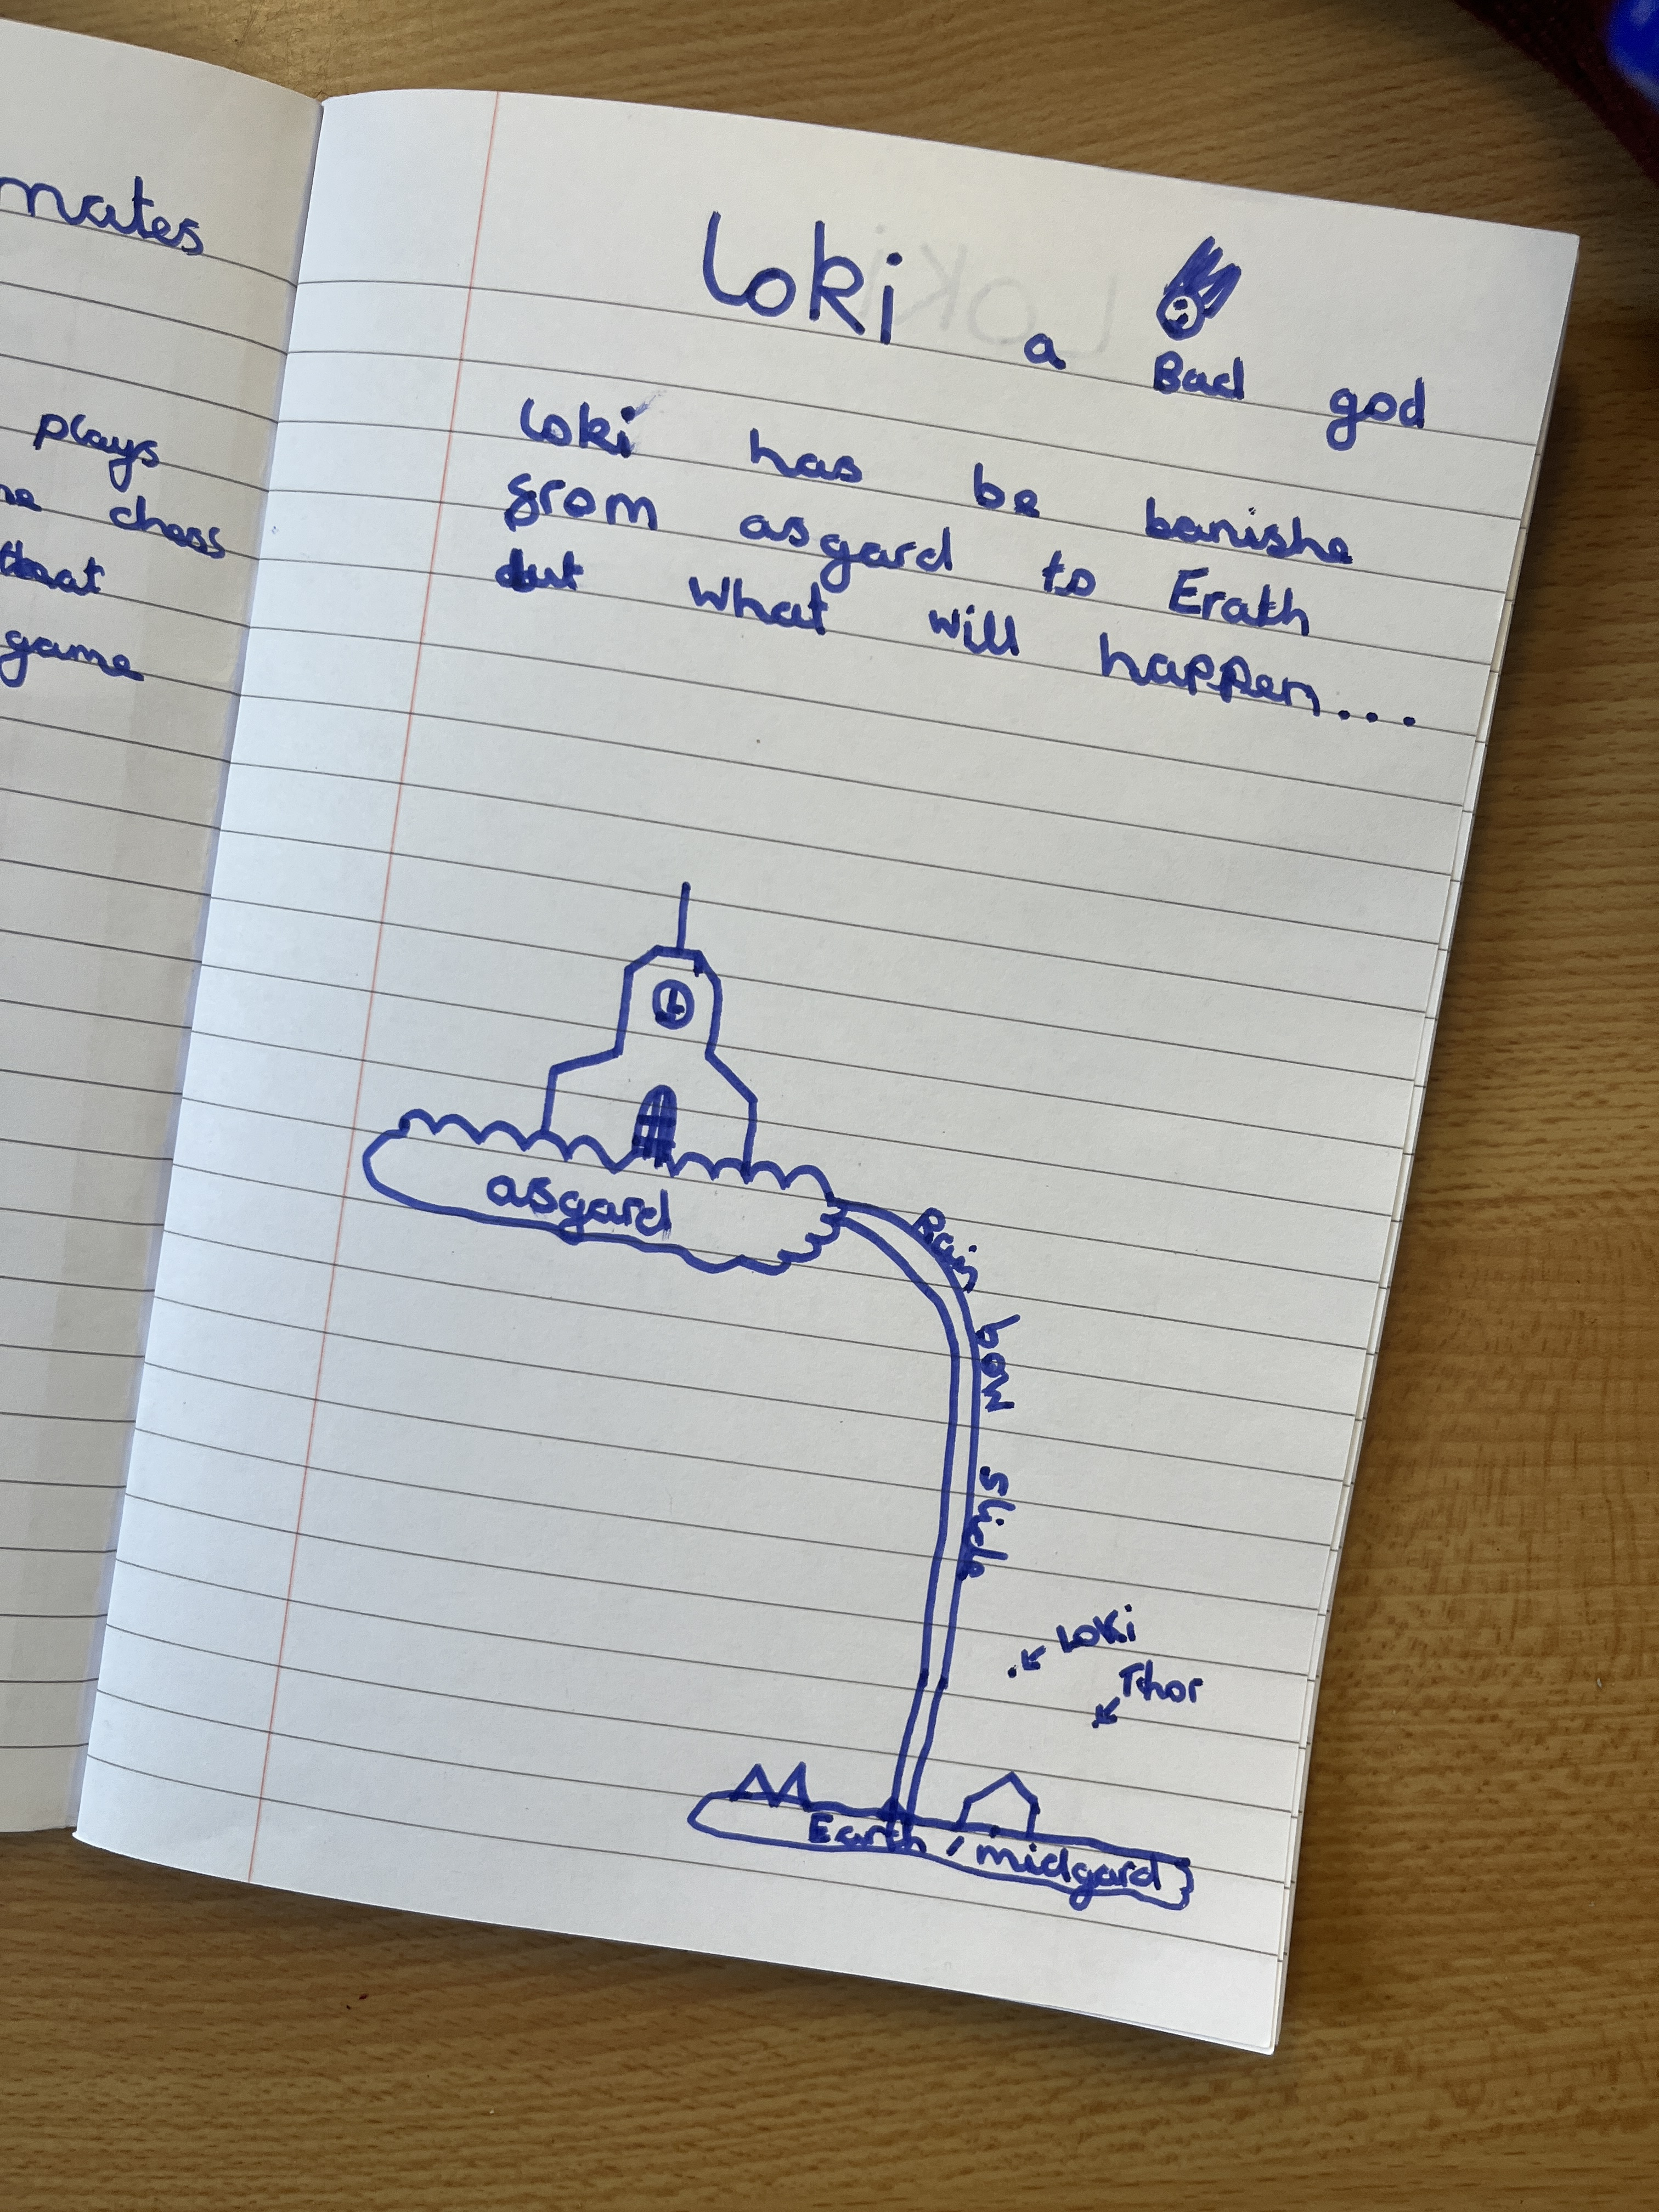 mates
plays
chess
that
game
Loki
a Bad god
Loki has be banishe
from asgard to Erath
but what will happen...
asgard
Rain bow Slide
Loki
Thor
Earth / midgard